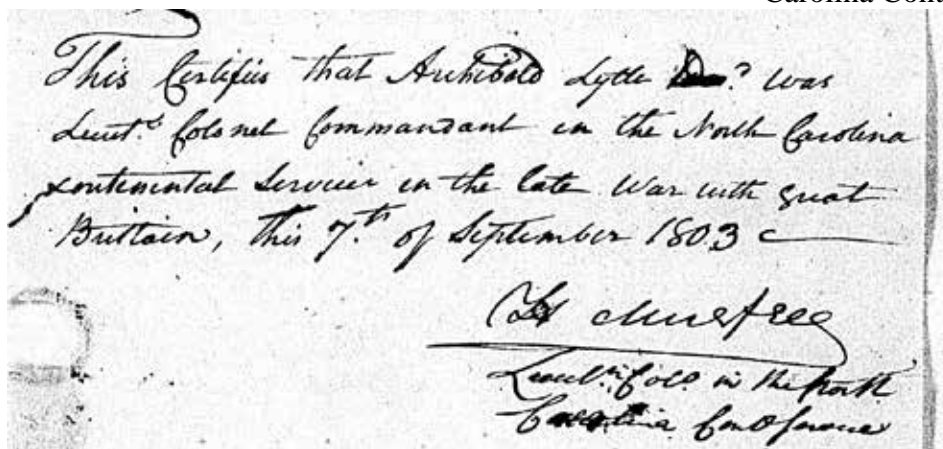 Carolina Cont
This Certifies that Archibald Lytle Dec.d was
Lieut.t Colonel Commandant in the North Carolina
Continental Service in the late War with great
Brittain, this 7.th of September 1803
H Murfree
Lieut.t Colo in the North
Carolina Cont Service